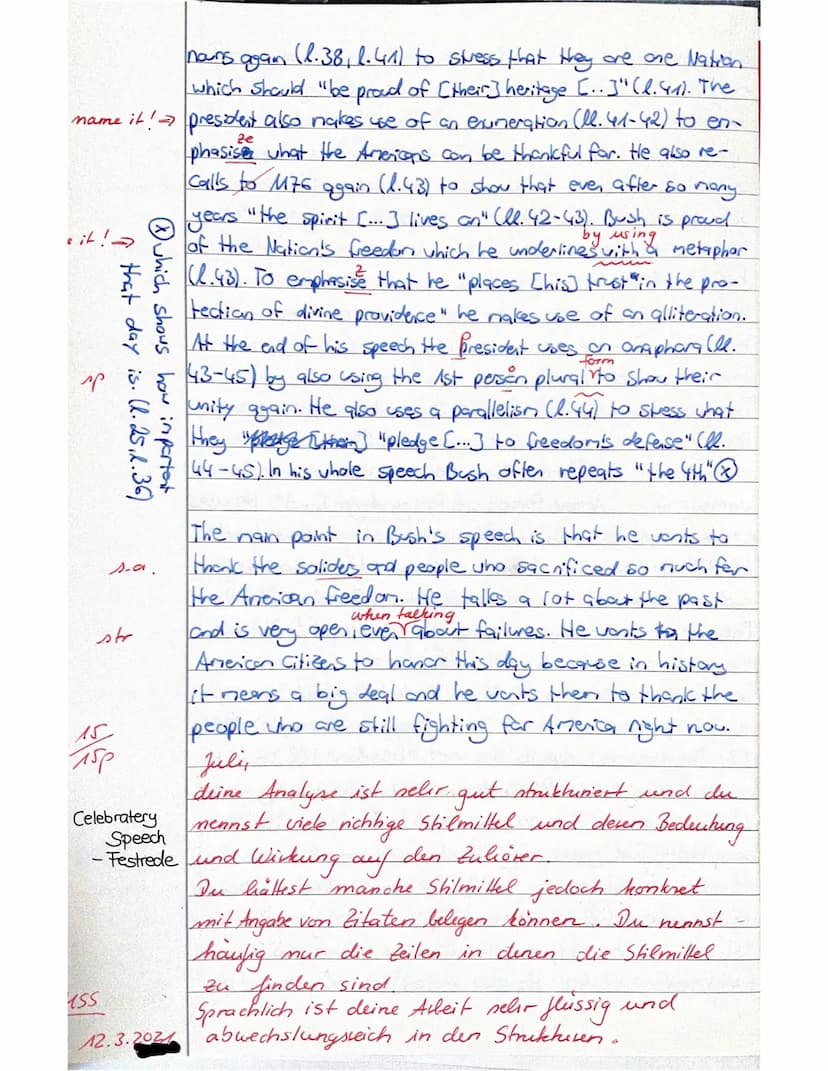 nouns again (l.38, l.41) to stress that they are one Nation
which should "be proud of [their] heritage [...]" (l.41). The
name it! →
president also makes use of an enumeration (ll. 41-42) to em-
ze
phasise what the Americans can be thankful for. He also re-
calls to 1176 again (l.43) to show that even after so many
years "the spirit [...] lives on" (ll. 42-43). Bush is proud
by using
e it! →
of the Nation's freedom which he underlines with a metaphor
z
(l.43). To emphasise that he "places [his] trust" in the pro-
tection of divine providence" he makes use of an alliteration.
At the end of his speech the President uses an anaphora (ll.
form
sp
43-45) by also using the 1st person plural to show their
unity again. He also uses a parallelism (l.44) to stress what
they "pledge [...] to freedom's defense" (ll.
44-45). In his whole speech Bush often repeats "the 4th" ⓧ
ⓧ which shows how important
that day is. (l.25, l.36)
The main point in Bush's speech is that he wants to
s.a.
thank the soliders and people who sacrificed so much for
the American freedom. He talks a lot about the past
when talking
str
and is very open, even about failures. He wants to the
American Citizens to honor this day because in history
it means a big deal and he wants them to thank the
people who are still fighting for America right now.
15
15p
Juli,
deine Analyse ist sehr gut strukturiert und du
nennst viele richtige Stilmittel und deren Bedeutung
und Wirkung auf den Zuhörer.
Celebratery
Speech
- Festrede
Du hättest manche Stilmittel jedoch konkret
mit Angabe von Zitaten belegen können. Du nennst
häufig nur die Zeilen in denen die Stilmittel
zu finden sind.
Sprachlich ist deine Arbeit sehr flüssig und
abwechslungsreich in den Strukturen.
155
12.3.2021